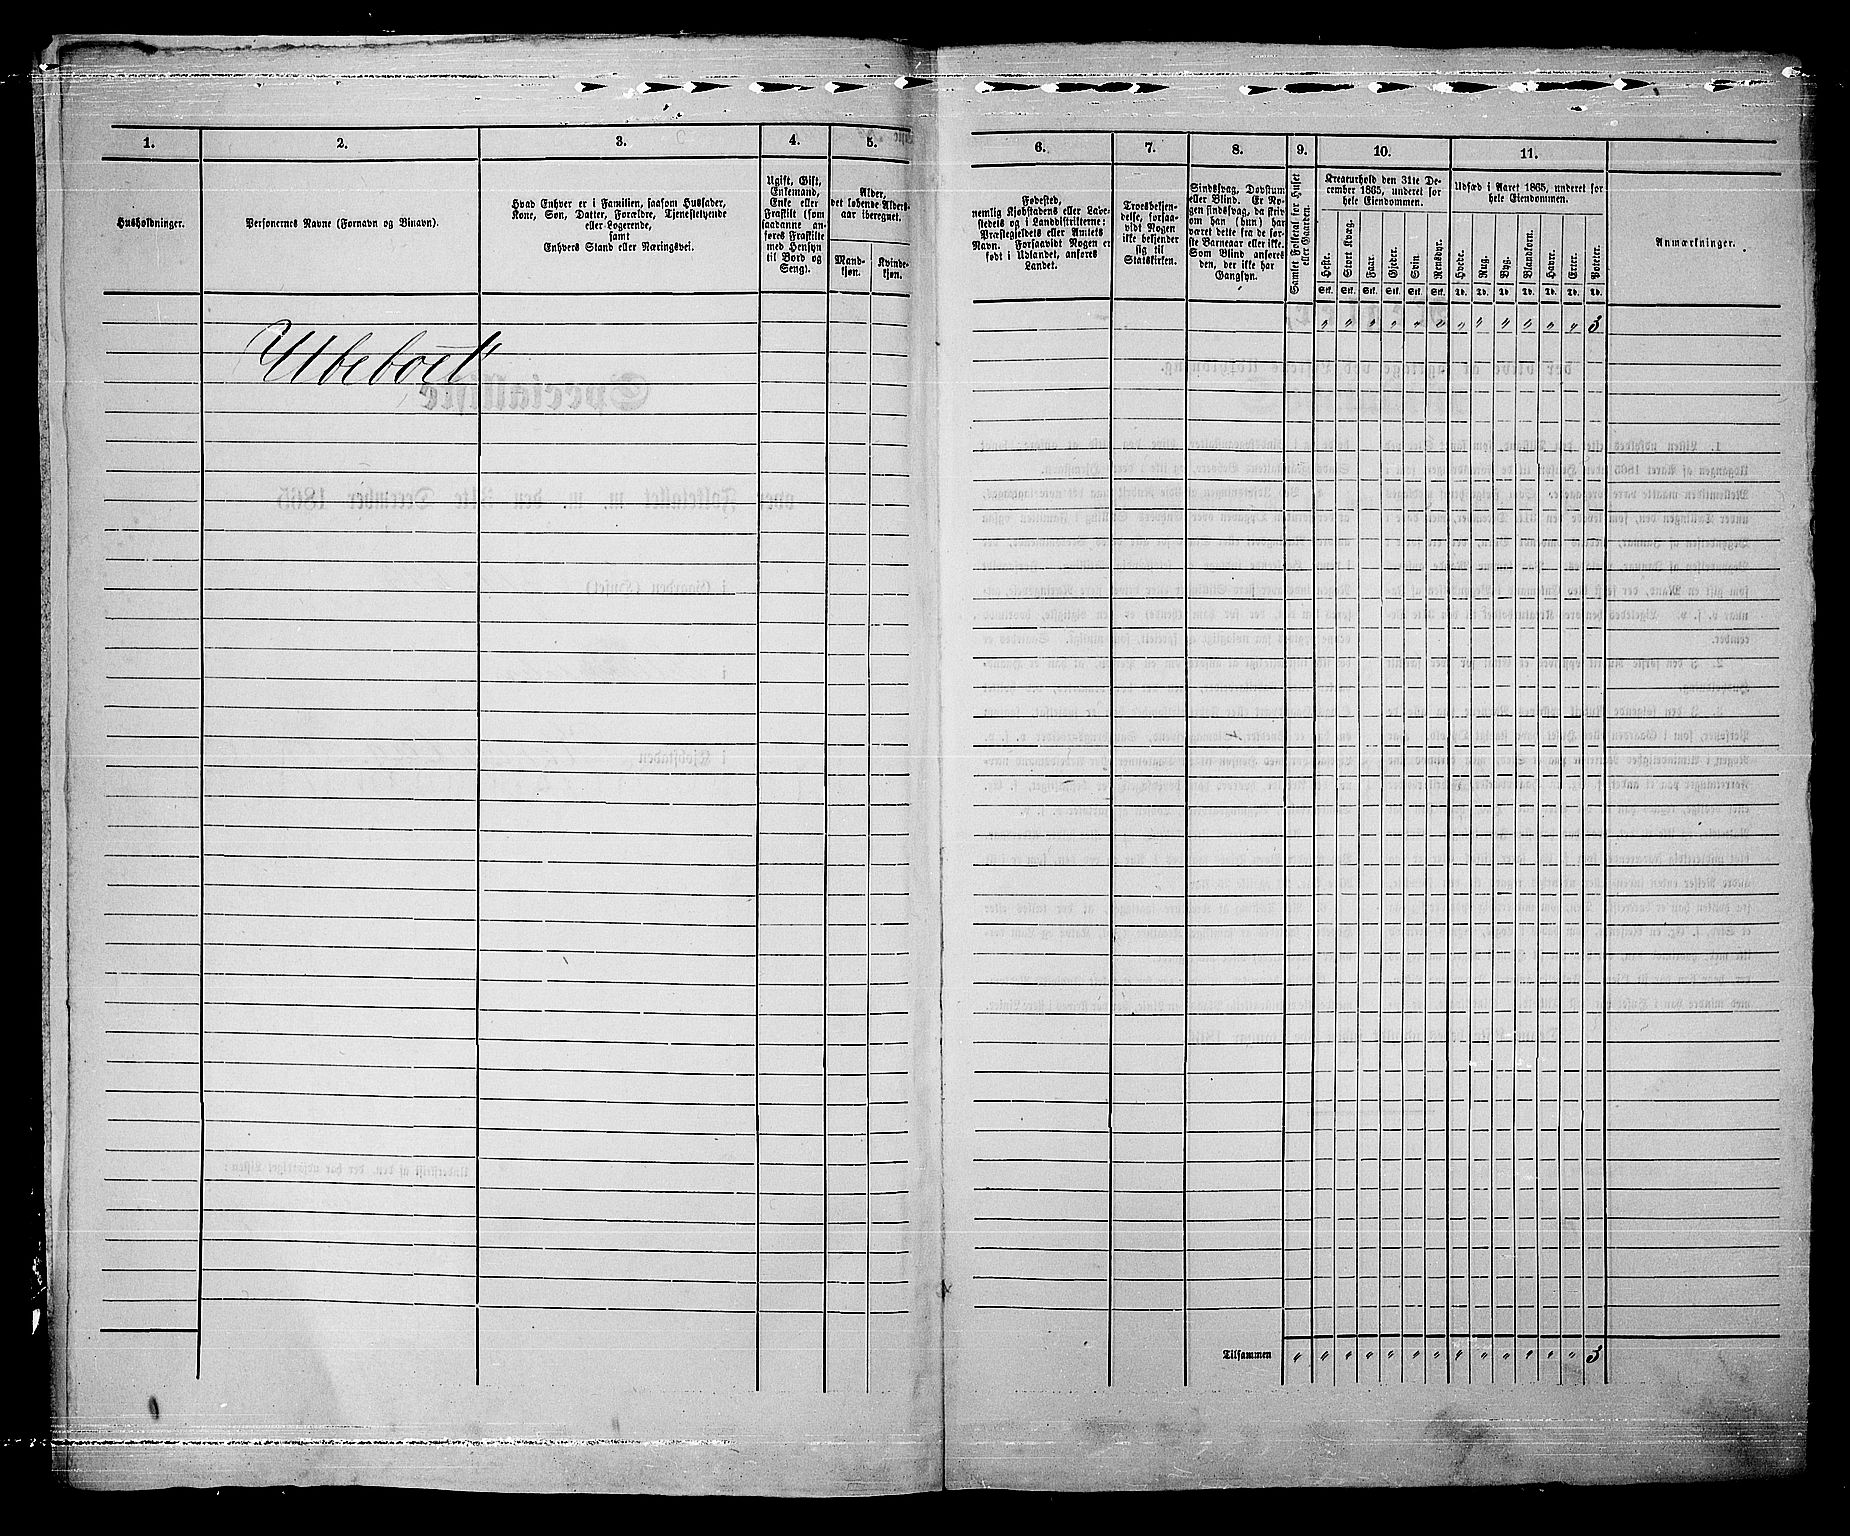 1.
2.
3.
4.
5.
Husholdninger.
Personernes Navne (Fornavn og Binavn).
Hvad Enhver er i Familien, saasom Husfader,
Kone, Søn, Datter, Forældre, Tjenestetyende
eller Logerende,
samt
Enhvers Stand eller Næringsvei.
Ugift, Gift,
Enkemand,
Enke eller
Fraskilt (som
saadanne an-
føres Fraskilte
med Hensyn
til Bord og
Seng).
Alder,
det løbende Alders-
aar iberegnet.
Mand-
kjøn.
Kvinde-
kjøn.
Ubeboet
6.
7.
8.
9.
10.
11.
Fødested,
nemlig Kjøbstadens eller Lade-
stedets og i Landdistrikterne:
Præstegjeldets eller Amtets
Navn. Forsaavidt Nogen er
født i Udlandet, anføres
Landet.
Troesbekjen-
delse, forsaa-
vidt Nogen
ikke bekjender
sig til
Statskirken.
Sindssvag, Døvstum
eller Blind. Er No-
gen sindssvag, da skriv
om han (hun) har
været dette fra de før-
ste Barneaar eller ikke.
Som Blind anføres
den, der ikke har
Gangsyn.
Samlet Folketal for Huset
eller Gaarden.
Kreaturhold den 31te De-
cember 1865, underet for
hele Eiendommen.
Heste.
Stort Kvæg.
Faar.
Gjeder.
Svin.
Rensdyr.
Stk. Stk. Stk. Stk. Stk. Stk.
Udsæd i Aaret 1865, underet for
hele Eiendommen.
Hvede.
Rug.
Byg.
Blandkorn.
Havre.
Erter.
Poteter.
Td. Td. Td. Td. Td. Td. Td.
Anmærkninger.
" " " " " " " " " " " " 3
Tilsammen " " " " " " " " " " " " " 3